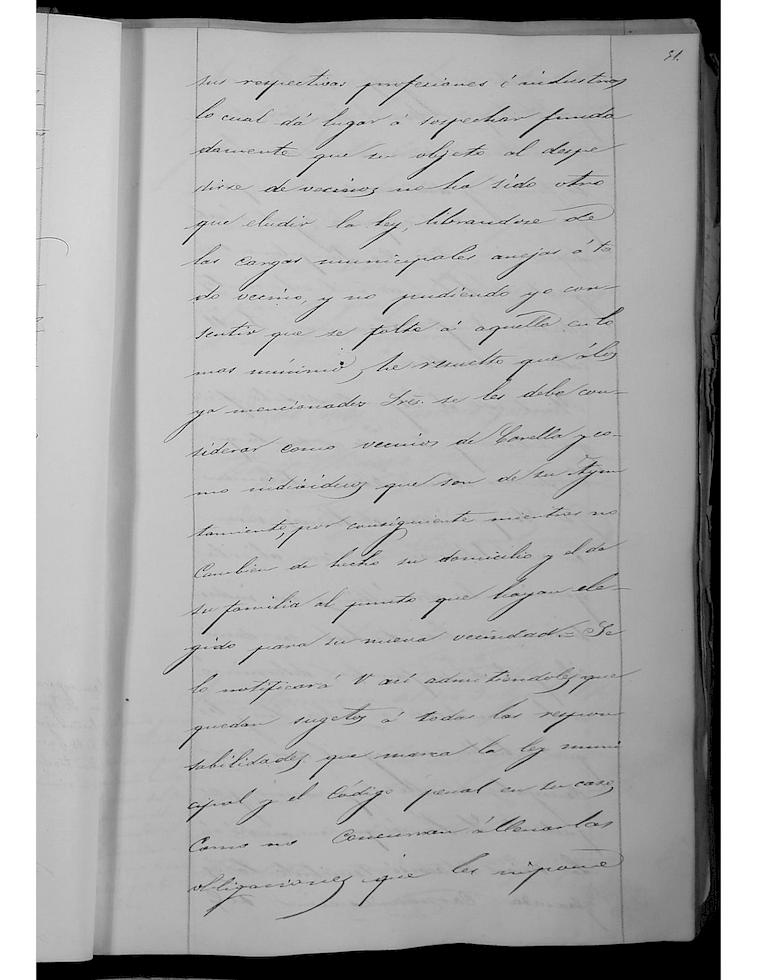 31.
sus respectivas profesiones é industrias
lo cual dá lugar á sospechar funda
damente que su objeto al despe
dirse de vecinos no ha sido otro
que eludir la ley, librandose de
las cargas municipales anejas á to
do vecino, y no pudiendo yo con-
sentir que se falte á aquella en lo
mas minimo, he resuelto que á los
ya mencionados Sres. se les debe con-
siderar como vecinos de Corella y co-
mo individuos que son de su Ayun
tamiento, por consiguiente mientras no
Cambien de hecho su domicilio y el de
su familia al punto que hayan ele-
gido para su nueva vecindad = Se
lo notificará V. asi admitiendoles que
quedan sugetos á todas las respon
sabilidades que marca la ley muni
cipal y el Código penal en su caso,
Como no Concurran á llenar las
obligaciones que les impone